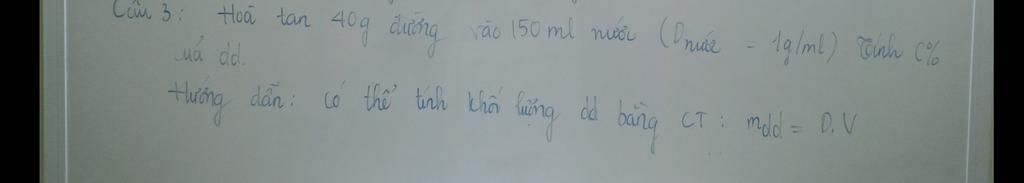 Câu 3: Hoà tan 40g đường vào 150 ml nước (Dnước = 1g/ml) Tính C%
của dd.
Hướng dẫn: có thể tính khối lượng dd bằng CT: mdd = D.V